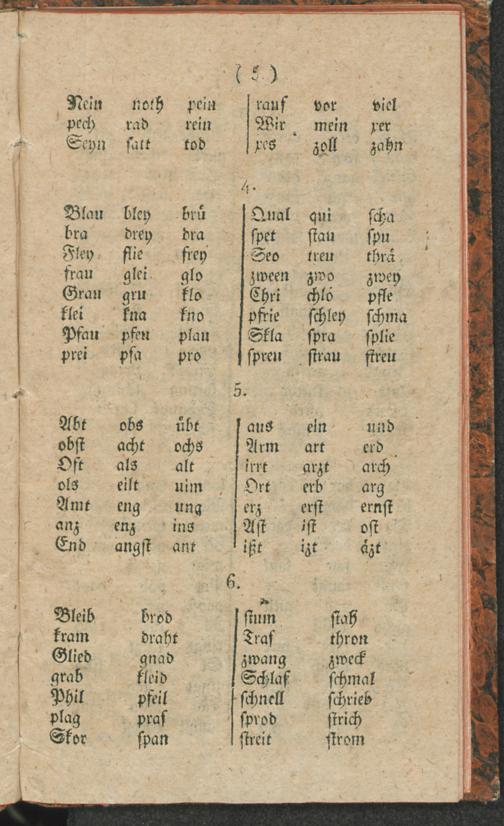 ( 5 )
Nein noth pein rauf vor viel
pech rad rein Wir mein xer
Seyn satt tod xes zoll zahn
4.
Blau bley brü Qual qui scha
bra drey dra spet stau spu
Fley flie frey Seo treu thrä
frau glei glo zween zwo zwey
Grau gru klo Chri chlo pfle
klei kna kno pfrie schley schma
Pfau pfeu plau Skla spra splie
prei psa pro spreu strau streu
5.
Abt obs übt aus ein und
obst acht ochs Arm art erd
Oft als alt irrt arzt arch
ols eilt uim Ort erb arg
Amt eng ung erz erst ernst
anz enz ins Ast ist ost
End angst ant ißt izt äzt
6.
Bleib brod stum stab
kram draht Traf thron
Glied gnad zwang zweck
grab kleid Schlaf schmal
Phil pfeil schnell schrieb
plag pras sprod strich
Skor span streit strom